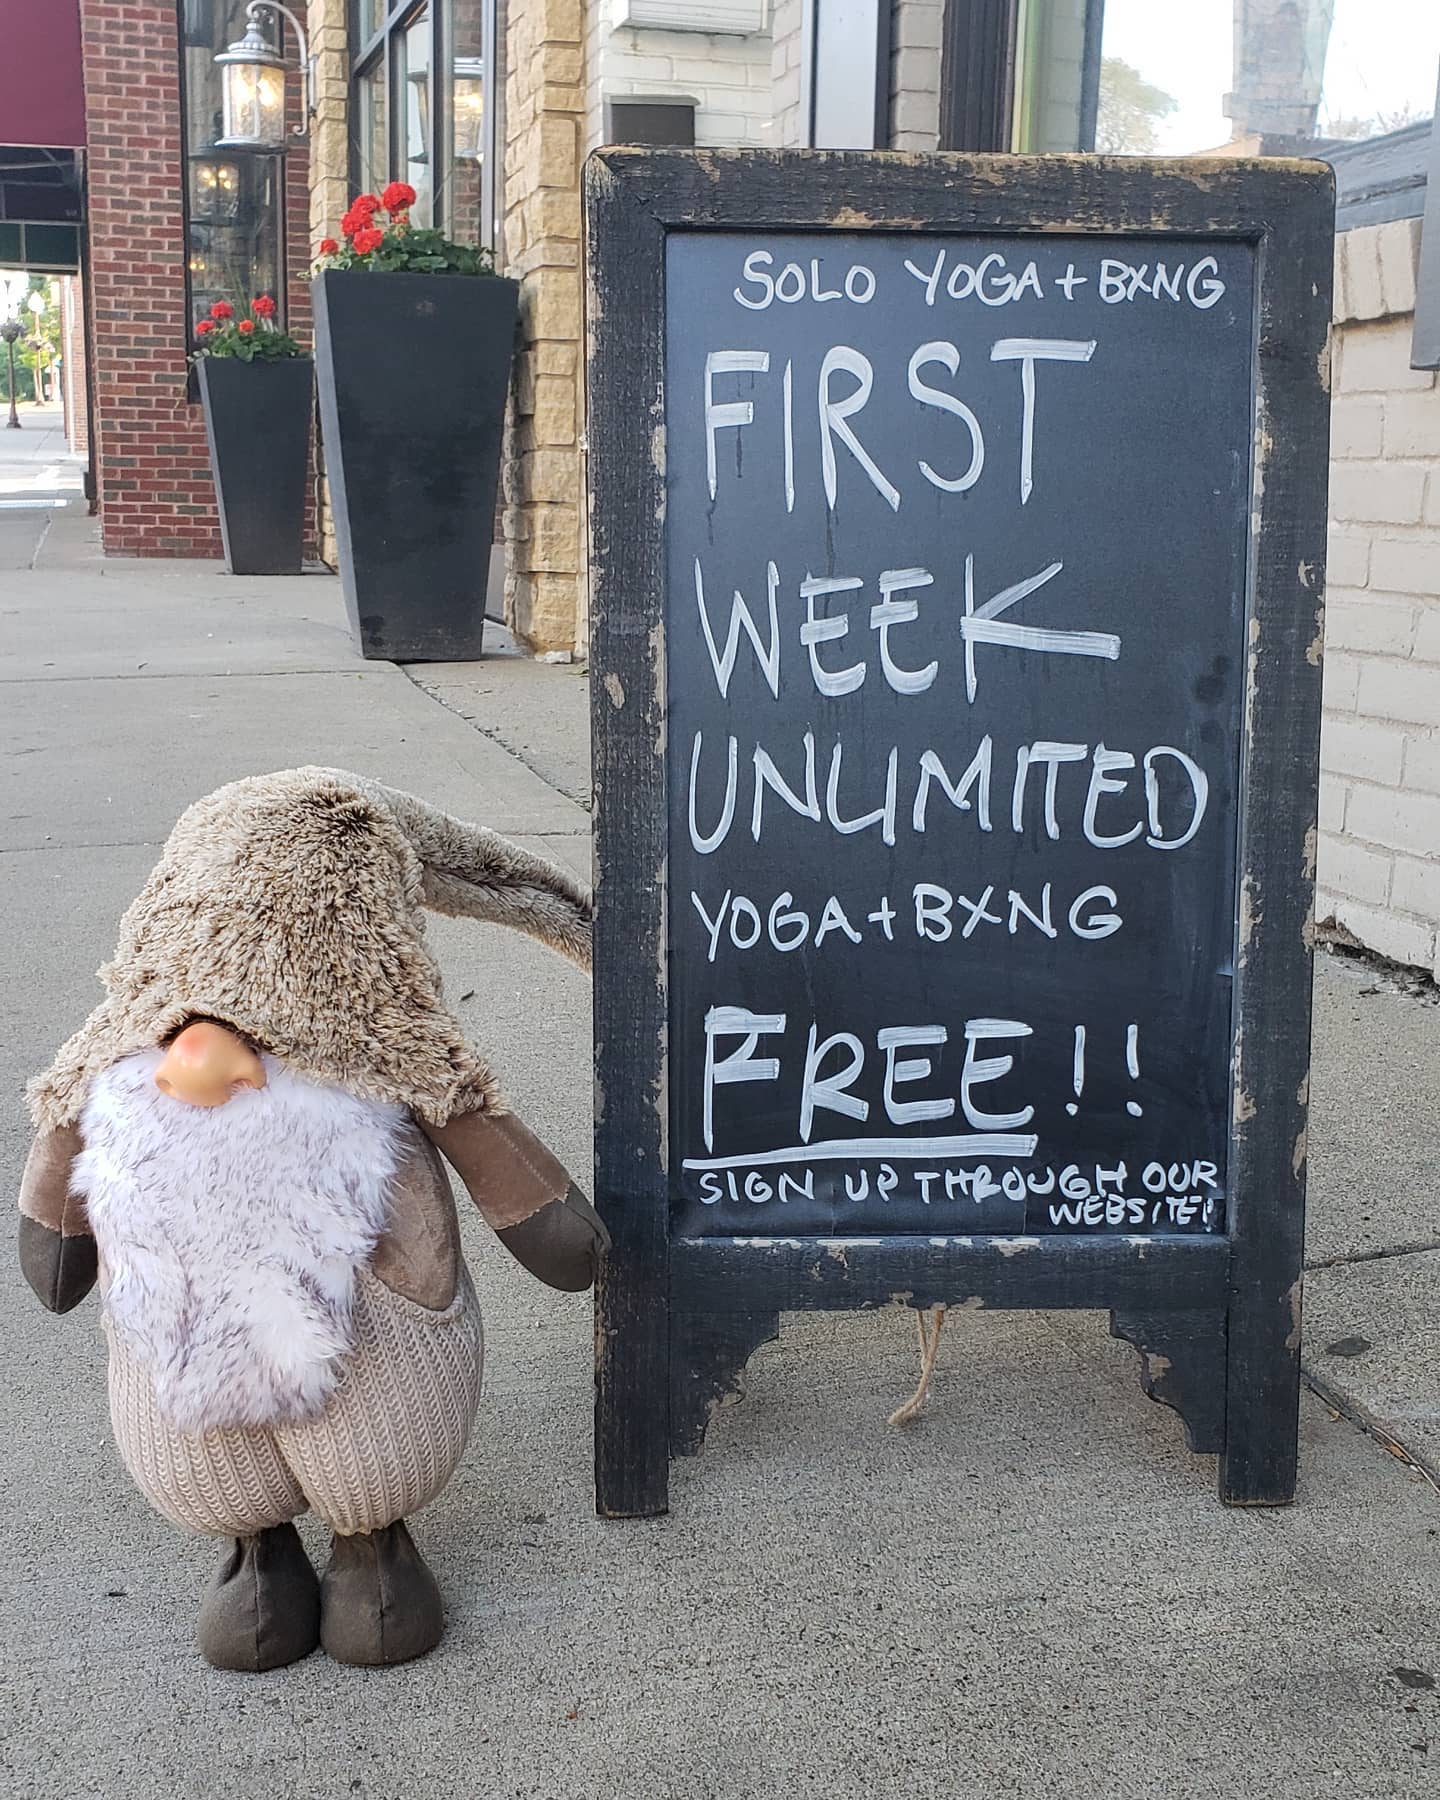 SOLO YOGA + BXNG
FIRST
WEEK
UNLIMITED
YOGA + BXNG
FREE!!
SIGN UP THROUGH OUR
WEBSITE!